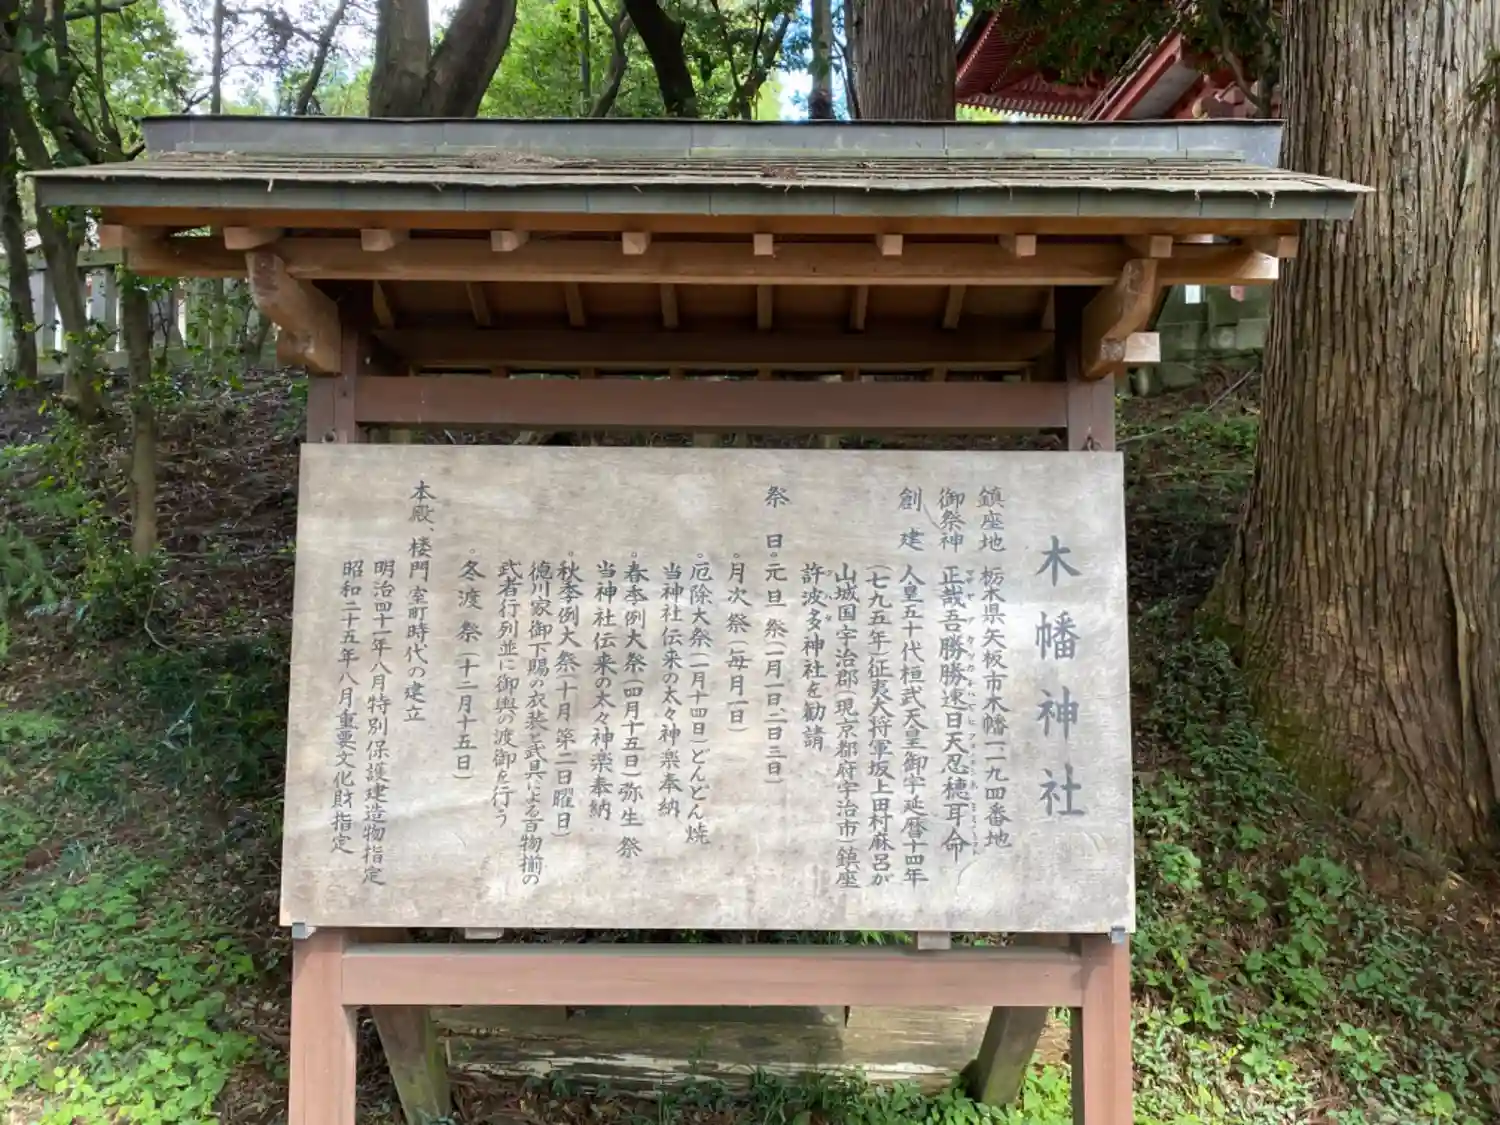 木幡神社
鎮座地 栃木県矢板市木幡一一九四番地
御祭神 正哉吾勝勝速日天忍穂耳命
創建 人皇五十代桓武天皇御宇延暦十四年
(七九五年)征夷大将軍坂上田村麻呂が
山城国宇治郡(現京都府宇治市)鎮座
許波多神社を勧請
祭日 ○元旦祭(一月一日、二日三日)
○月次祭(毎月一日)
○厄除大祭(一月十四日)どんどん焼
当神社伝来の太々神楽奉納
○春季例大祭(四月十五日)弥生祭
当神社伝来の太々神楽奉納
○秋季例大祭(十月第二日曜日)
徳川家御下賜の衣装と武具による百物揃の
武者行列並に御輿の渡御を行う
○冬渡祭(十二月十五日)
本殿、楼門 室町時代の建立
明治四十一年八月特別保護建造物指定
昭和二十五年八月重要文化財指定